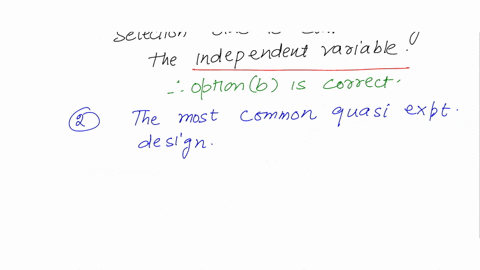 Selection
the independent variable.
∴ option(b) is correct.
② The most common quasi expt.
design.